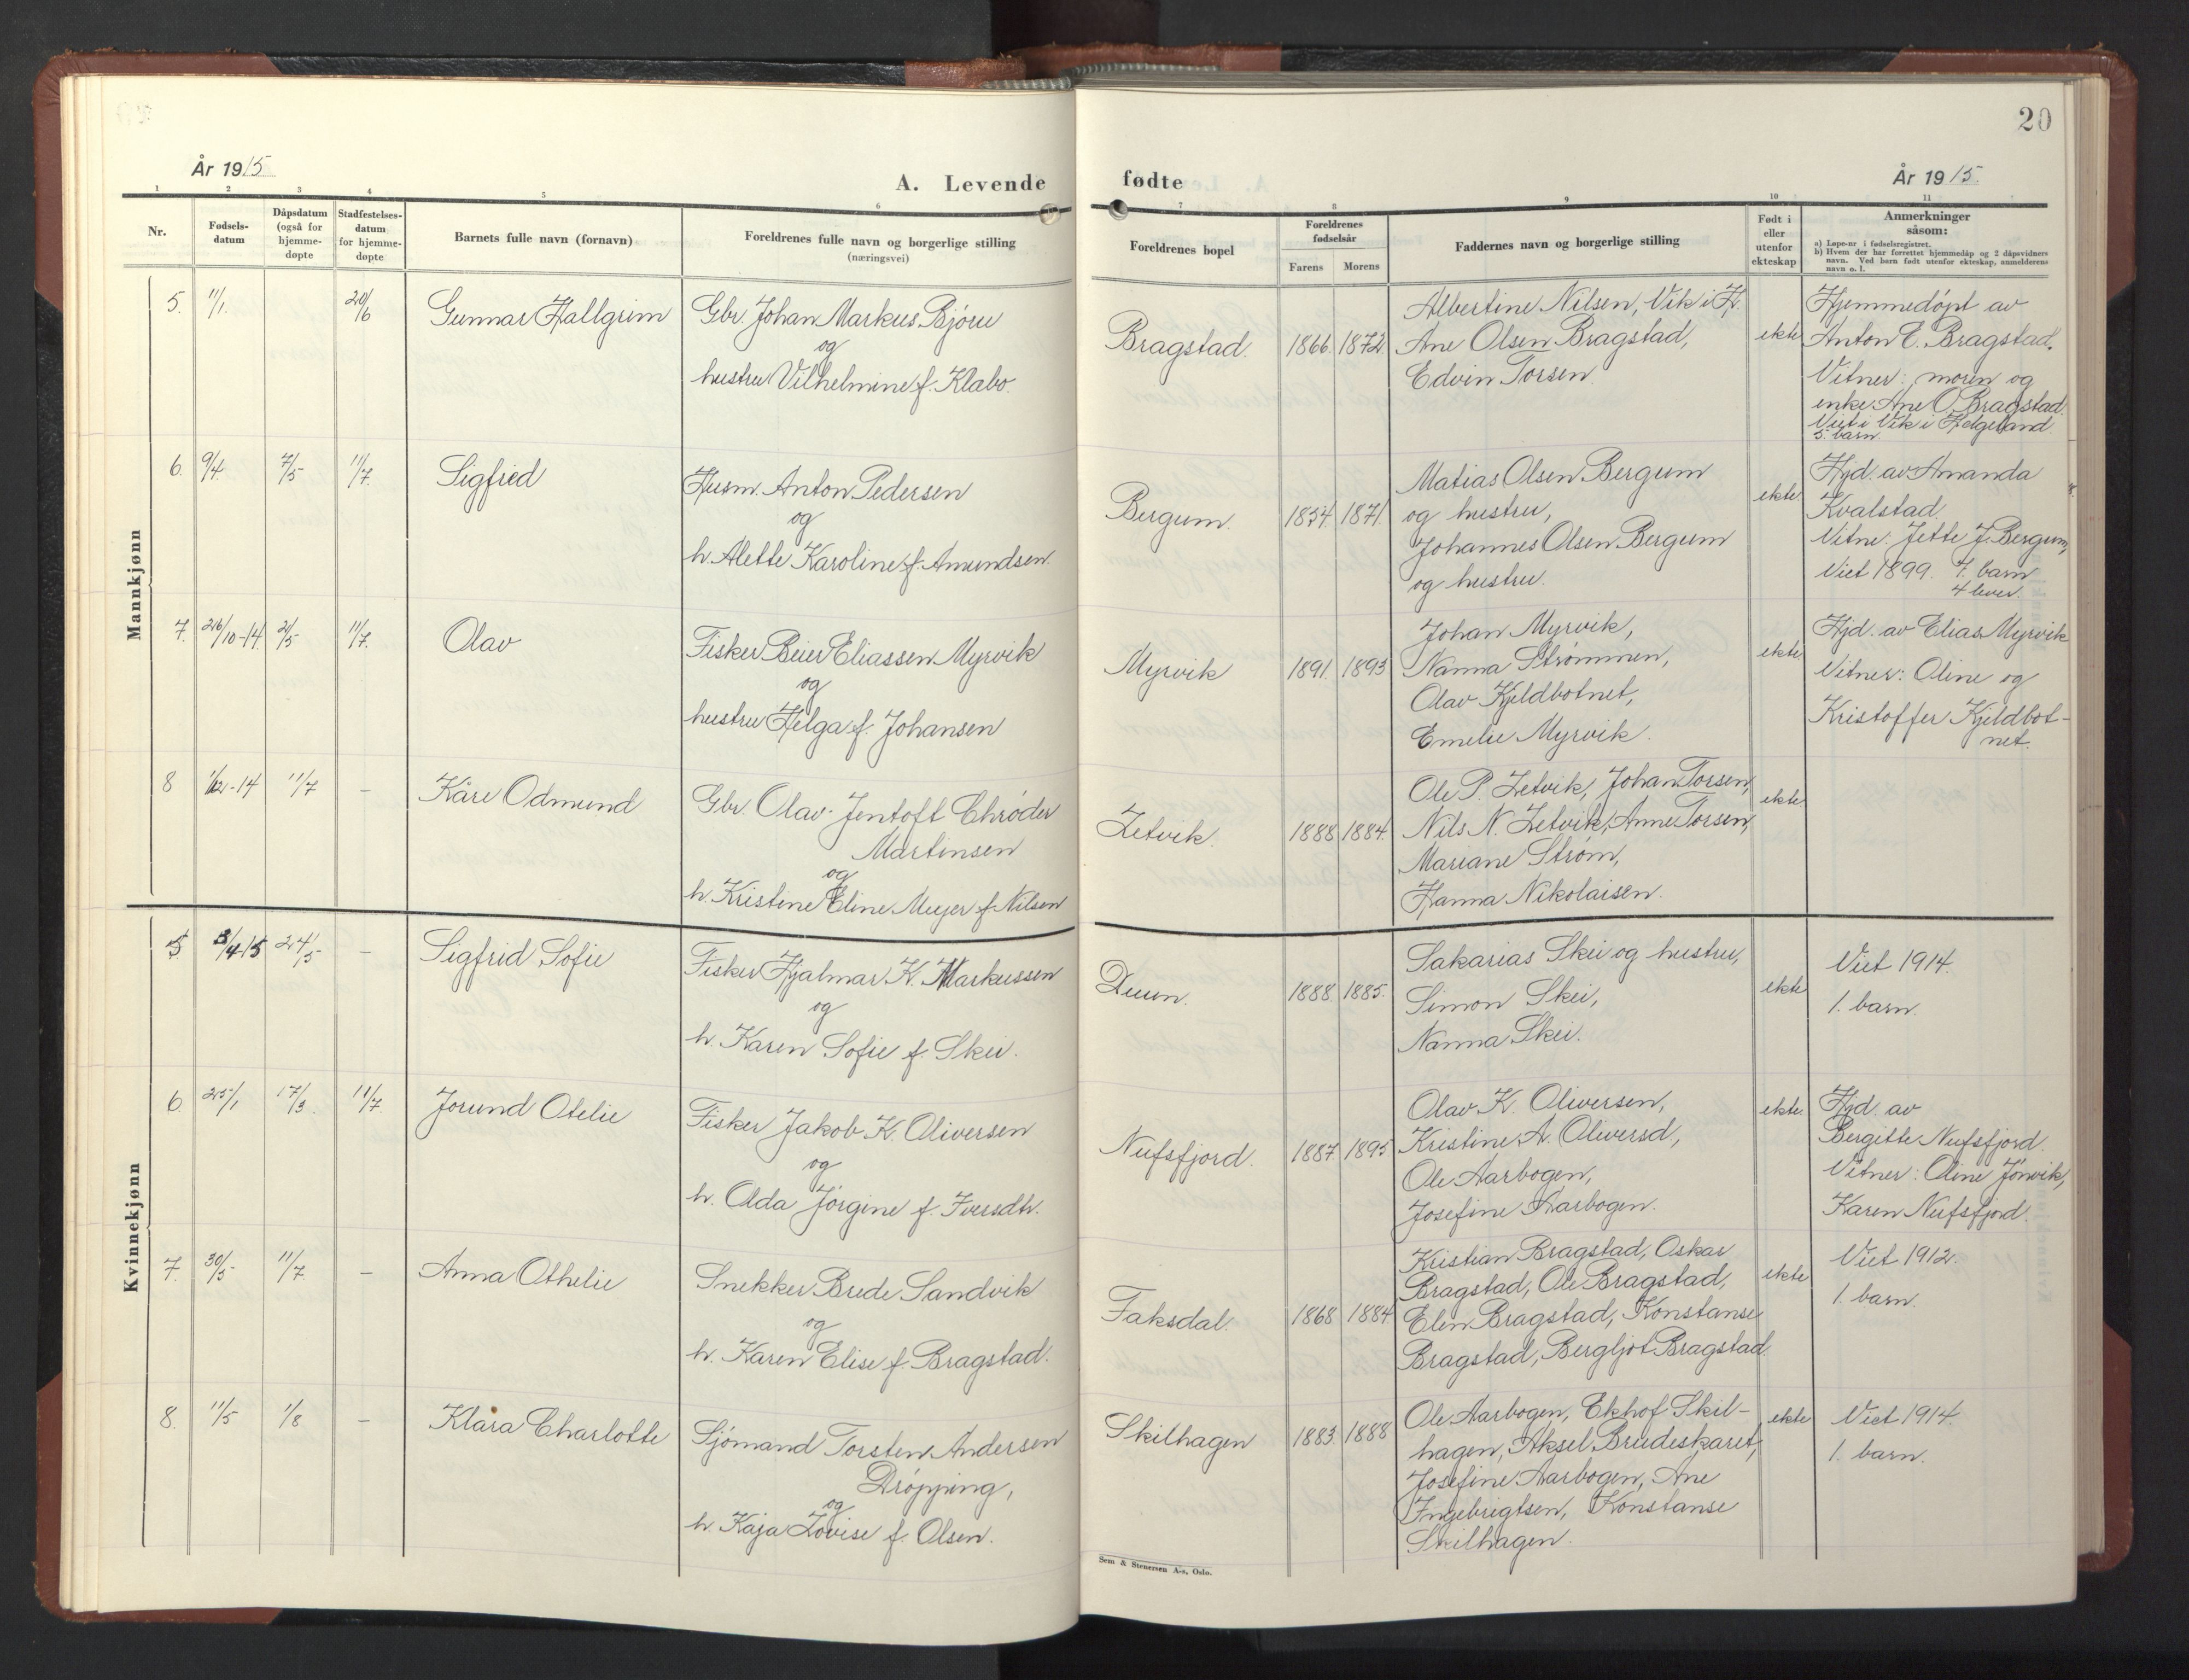 20
År 1915
A. Levende
fødte
År 1915.
1
2
3
4
5
6
7
8
9
10
11
Nr.
Fødsels-
datum
Dåpsdatum
(også for
hjemme-
døpte
Stadfestelses-
datum
for hjemme-
døpte
Barnets fulle navn (fornavn)
Foreldrenes fulle navn og borgerlige stilling
(næringsvei)
Foreldrenes bopel
Foreldrenes
fødselsår
Farens
Morens
Faddernes navn og borgerlige stilling
Født i
eller
utenfor
ekteskap
Anmerkninger
såsom:
a) Løpe-nr i fødselsregistret.
b) Hvem der har forrettet hjemmedåp og 2 dåpsvidners
navn. Ved barn født utenfor ekteskap, anmelderens
navn o. l.
Mannkjønn
5. 11/1. 20/6 Gunnar Hallgrim
Gbr. Johan Markus Bjøru
og
hustru Vilhelmine f. Klabo.
Bragstad. 1866. 1872.
Albertine Nilsen, Vik i H.
Ane Olsen Bragstad,
Edvin Torsen.
ekte
Hjemmedøpt av
Anton E. Bragstad.
Vitner: moren og
enke Ane O. Bragstad.
Viet i Vik i Helgeland.
5. barn.
6. 9/4. 7/5 11/7. Sigfred
Husm. Anton Pedersen
og
h. Alette Karoline f. Amundsen.
Bergum. 1854. 1871.
Matias Olsen Bergum
og hustru,
Johannes Olsen Bergum
og hustru.
ekte.
Hjd. av Amanda
Kvalstad.
Vitne: Jette J. Bergum,
Viet 1899. 7. barn
4 lever.
7. 26/10-14. 2/5 11/7. Olav
Fisker Beier Eliassen Myrvik
og
hustru Helga f. Johansen
Myrvik 1891. 1893
Johan Myrvik,
Nanna Strømmen,
Olav Kjeldbotnet,
Emelie Myrvik.
ekte.
Hjd. av Elias Myrvik
Vitner: Oline og
Kristoffer Kjeldbot-
net.
8 1/12-14 11/7 – Kåre Odmund
Gbr. Olav Jentoft Chrøder
Martinsen
og
h. Kristine Eline Meyer f. Nilsen
Letvik. 1888 1884.
Ole P. Letvik, Johan Torsen,
Nils N. Letvik, Anne Torsen,
Mariane Strøm,
Hanna Nikolaisen.
ekte
Kvinnekjønn
5. 3/4-15 24/5 – Sigfrid Sofie
Fisker Hjalmar K. Markussen
og
h. Karen Sofie f. Skei.
Duun. 1888. 1885.
Sakarias Skei og hustru,
Simon Skei,
Nanna Skei.
ekte
Viet 1914.
1. barn.
6 25/1 17/3. 11/7. Jorund Otelie
Fisker Jakob K. Oliversen
og
h. Alda Jørgine f. Iversdtr.
Nufsfjord. 1887 1895
Olav K. Oliversen,
Kristine A. Oliversd.,
Ole Aarbogen,
Josefine Aarbogen.
ekte.
Hjd. av
Bergitte Nufsfjord.
Vitner: Oline Jønvik,
Karen Nufsfjord.
7. 30/5 11/7. – Anna Othelie
Snekker Brede Sandvik
og
h. Karen Elise f. Bragstad.
Faksdal. 1868 1884
Kristian Bragstad, Oskar
Bragstad, Ole Bragstad,
Elen Bragstad, Konstanse
Bragstad, Bergljot Bragstad.
ekte
Viet 1912.
1. barn.
8. 11/5 1/8 – Klara Charlotte
Sjømand Torsten Andersen
Drøpping,
og
h. Kaja Lovise f. Olsen.
Skilhagen 1883. 1888
Ole Aarbogen, Ekhof Skil-
hagen, Aksel Brudeskaret,
Josefine Aarbogen, Ane
Ingebrigtsen, Konstanse
Skilhagen.
ekte
Viet 1914.
1. barn.
Sem & Stenersen A-s, Oslo.